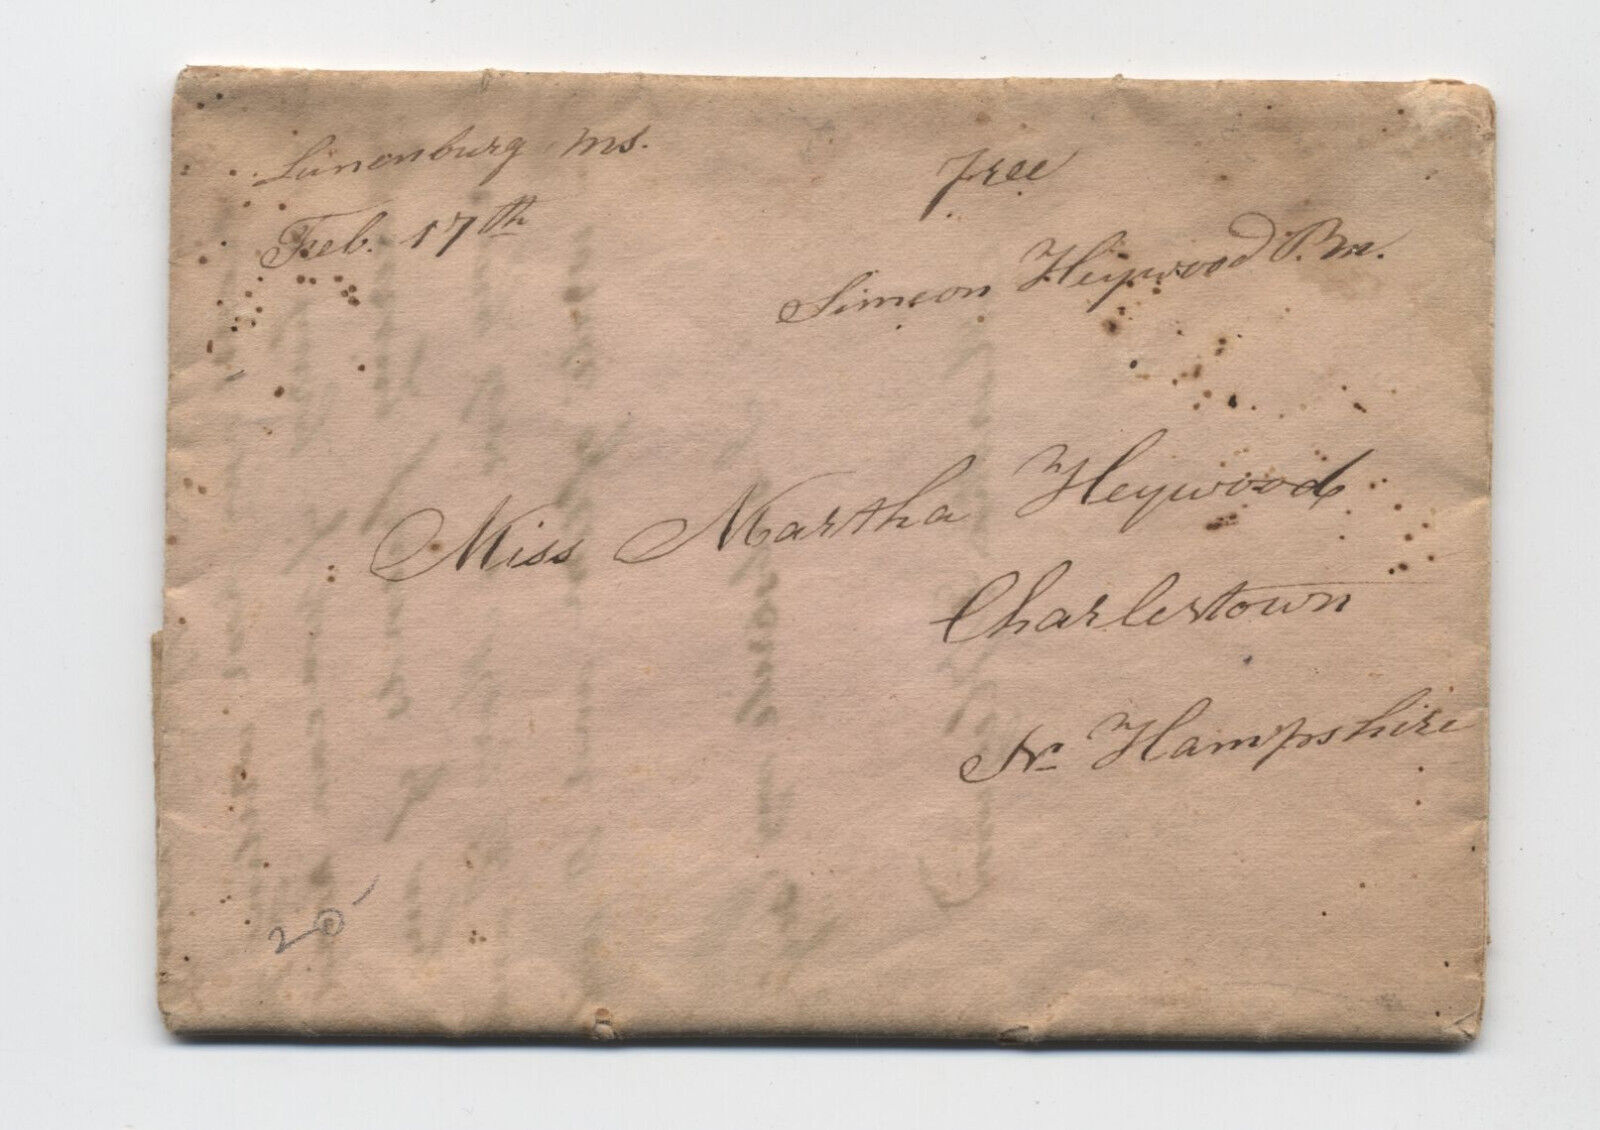 Lunenburg Ms.
Feb. 17th
Free
Simeon Heywood P.M.
Miss Martha Heywood
Charlestown
N. Hampshire
20